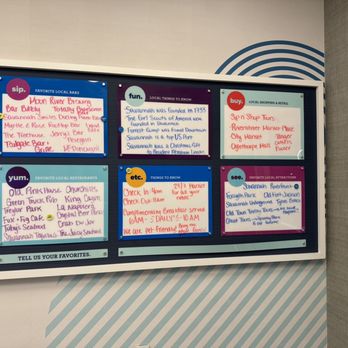 sip.
FAVORITE LOCAL BARS
Moon River Brewing
Bar Bubbly Totally
Savannah Smiles Dueling Piano Bar
Myrtle & Rose Rooftop Bar
The Treehouse Jerry's Bar
Tailgate Bar +
Grille McDonough's
fun.
LOCAL THINGS TO KNOW
Savannah was Founded in 1733
The Girl Scouts of America were
founded in Savannah
Forrest Gump was filmed Downtown
Savannah is a top US Port
Savannah was a Christmas Gift
to President Abraham Lincoln
buy.
LOCAL SHOPPING & RETAIL
Spin Shop Tours
Riverstreet Market Place
City Market
Oglethorpe Mall
yum.
FAVORITE LOCAL RESTAURANTS
Olde Pink House Churchills
Green Truck Pub King
Treylor Park La Napolera
Fox + Fig Cafe
Toby's Seafood Crab Du Jour
Savannah Taphouse The Juicy Seafood
etc.
THINGS TO KNOW
Check In 4pm
Check Out 11am
24/7 Market
for all your
needs
Complimentary Breakfast served
6AM - DAILY - 10 AM
We are pet friendly
see.
FAVORITE LOCAL ATTRACTIONS
Savannah Riverfront
Forsyth Park Old Fort Jackson
Savannah Underground Tybee Beach
Old Town Trolley Tours
Ghost Tours
TELL US YOUR FAVORITES.